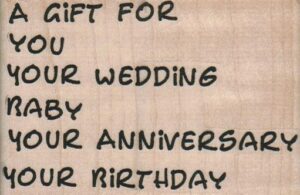 A GiFT FOR
YOU
YOUR WEDDiNG
BABY
YOUR ANNiVERSARY
YOUR BiRTHDAY